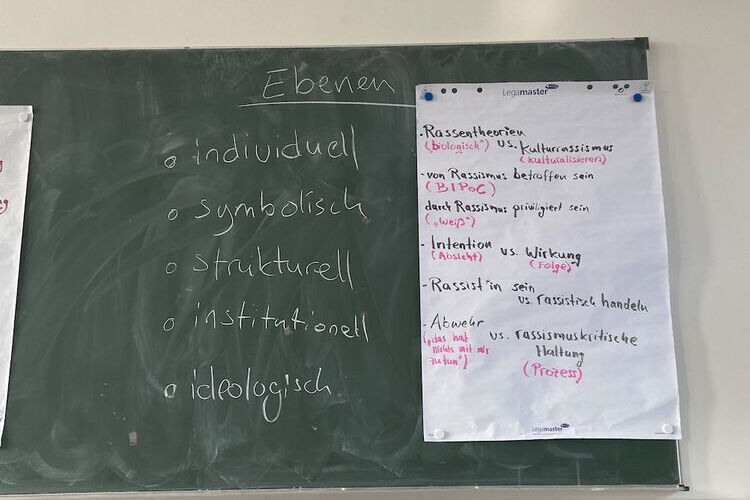 Ebenen
o individuell
o symbolisch
o strukturell
o institutionell
o ideologisch
Legamaster
-Rassentheorien vs. Kulturrassismus
("biologisch") (kulturalisieren)
-von Rassismus betroffen sein
(BIPoC)
durch Rassismus priviligiert sein
("weiß")
-Intention vs. Wirkung
(Absicht) (Folge)
-Rassist*in sein
vs. rassistisch handeln
-Abwehr vs. rassismuskritische
("das hat Haltung
nichts mit mir (Prozess)
zu tun")
Legamaster